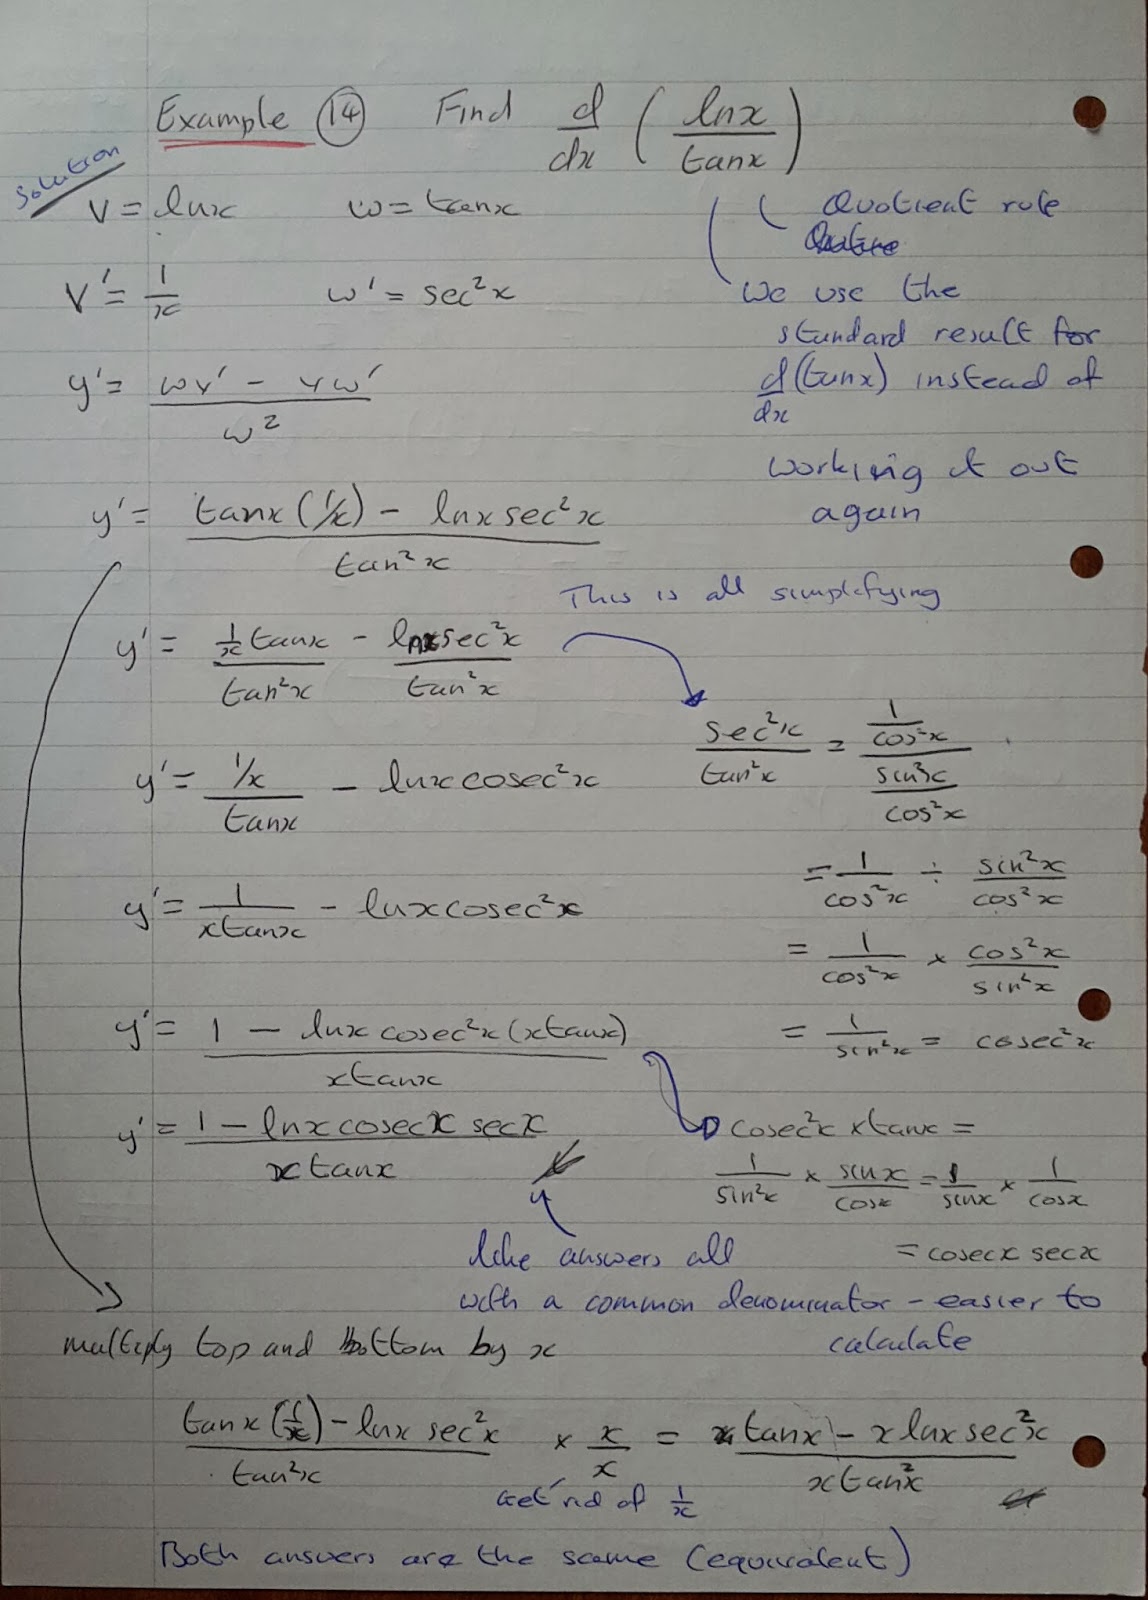 Example 14 Find d/dx (lnx/tanx)
Solution
v = lnx w = tanx
Quotient rule
v' = 1/x w' = sec²x
We use the
standard result for
d/dx (tanx) instead of
working it out
again
y' = (wv' - vw')/w²
y' = (tanx(1/x) - lnx sec²x)/tan²x
This is all simplifying
y' = (1/x tanx)/tan²x - (lnx sec²x)/tan²x
sec²x/tan²x = (1/cos²x)/(sin²x/cos²x)
y' = (1/x)/tanx - lnx cosec²x
= 1/cos²x ÷ sin²x/cos²x
y' = 1/(xtanx) - lnx cosec²x
= 1/cos²x × cos²x/sin²x
y' = (1 - lnx cosec²x (xtanx))/(xtanx)
= 1/sin²x = cosec²x
y' = (1 - lnx cosecx secx)/(xtanx)
cosec²x × tanx =
1/sin²x × sinx/cosx = 1/sinx × 1/cosx
= cosecx secx
like answers all
with a common denominator - easier to
calculate
multiply top and bottom by x
(tanx(1/x) - lnx sec²x)/tan²x × x/x = (tanx - x lnx sec²x)/(xtan²x)
Get rid of 1/x
Both answers are the same (equivalent)